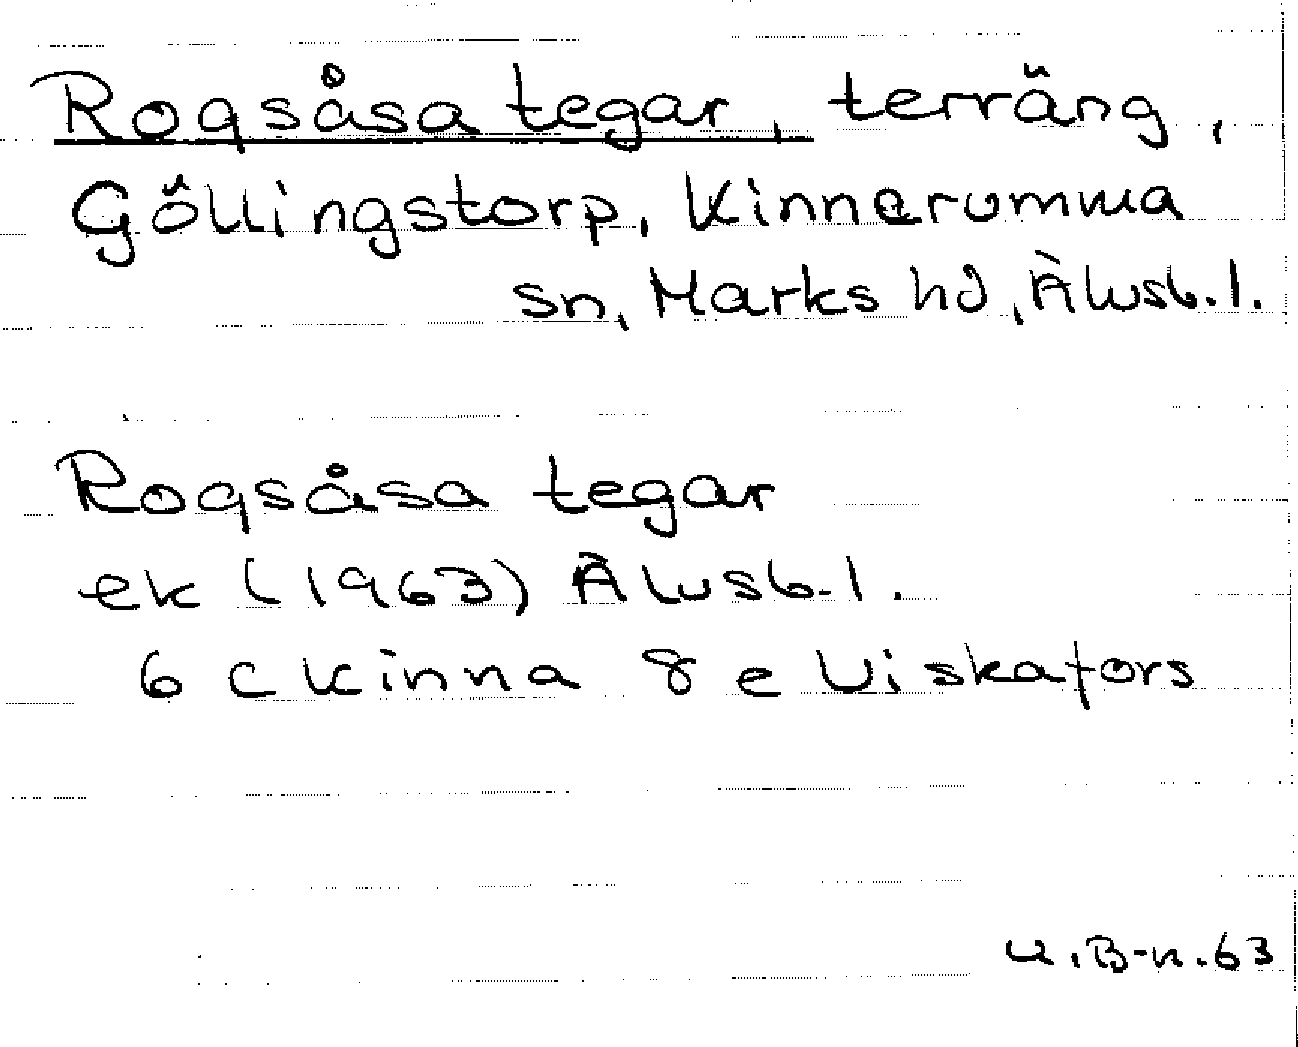 Roqsåsa tegar, terräng,
Göllingstorp, Kinnarumma
sn, Marks hd, Älvsb.l.
Roqsåsa tegar
ek (1963) Älvsb.l.
6 c Kinna 8 e Viskafors
U.B-n.63